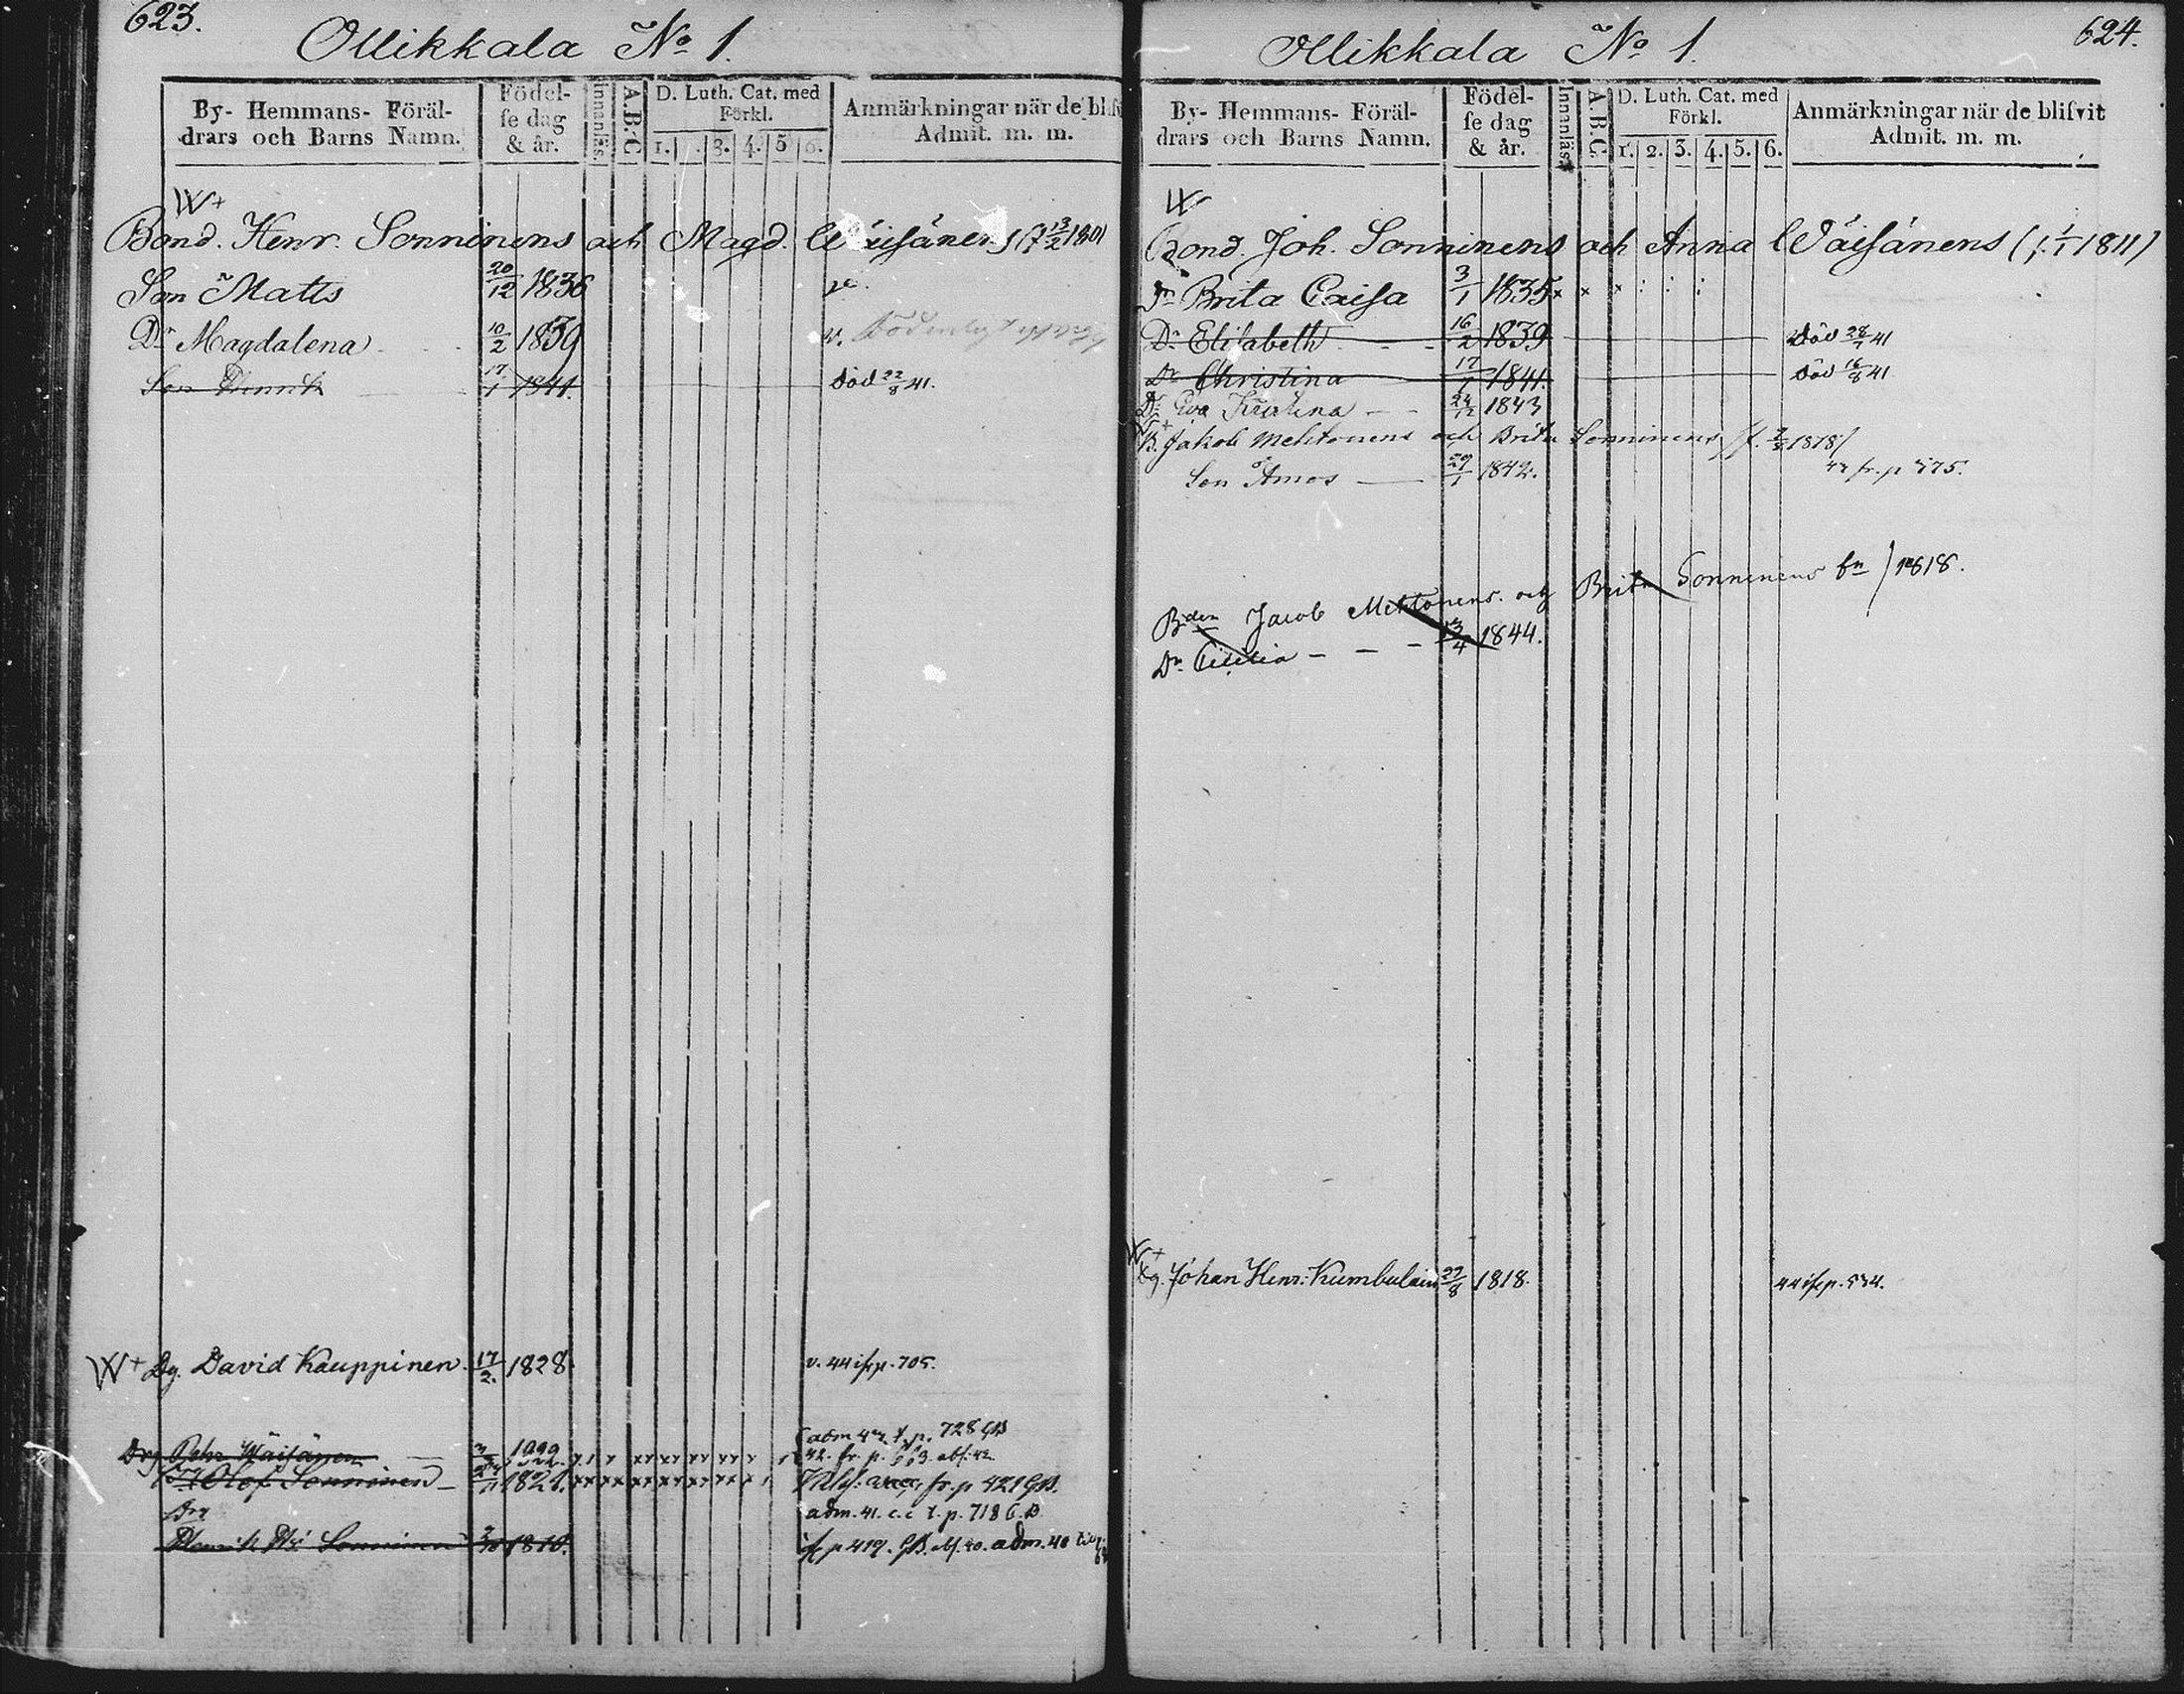 623.
Ollikkala No 1.
By- Hemmans- Föräl-
drars och Barns Namn.
Födel-
se dag
& år.
Innanläs.
A.B.C
D. Luth. Cat. med
Förkl.
1. 3. 4. 5 6.
Anmärkningar när de blifv
Admit. m. m.
W+
Bond. Henr. Sonninens och Magd. Wäisänens (f 13/2 1801
Son Matts 20/12 1836 v.
Dr Magdalena 10/2 1839 v.
Son Henrik 17/1 1841. död 22/8 41.
W+ Dg. David Kauppinen. 17/2. 1828. v. 44 ifr p. 705.
adm 42 t. p. 728 GB
Drg Pehr Wäisänen 42. fr. p. abs: 42
Olof Sonninen 1821. fr. p 421 GB.
Drg adm. 41. c.c t. p. 718 G.B
Henrik Sonninen 1818. ifr p 419. GB. abs. 40. adm. 40
624.
Ollikkala No 1.
By- Hemmans- Föräl-
drars och Barns Namn.
Födel-
se dag
& år.
Innanläs.
A.B.C.
D. Luth. Cat. med
Förkl.
1. 2. 3. 4. 5. 6.
Anmärkningar när de blifvit
Admit. m. m.
W
Bond. Joh. Sonninens och Anna Wäisänens (f. 1/1 1811)
Dr Brita Caisa 3/1 1835 x x x
Dr Elisabeth 16/2 1839 död 28/7 41
Dr Christina 17/1 1841. död 16/8 41
Dr Eva Kristina 24/12 1843
B. Jakob Mehtonens och Brita Sonninens /f. 1818/
Son Amos 29/1 1842. 43 fr. p 575.
Bden Jacob Mehtonens och Brita Sonninens fn / 1818.
Dr Cecilia 13/4 1844.
W+
Dg. Johan Henr: Kumbulain 27/8 1818. 44 ifr p. 534.